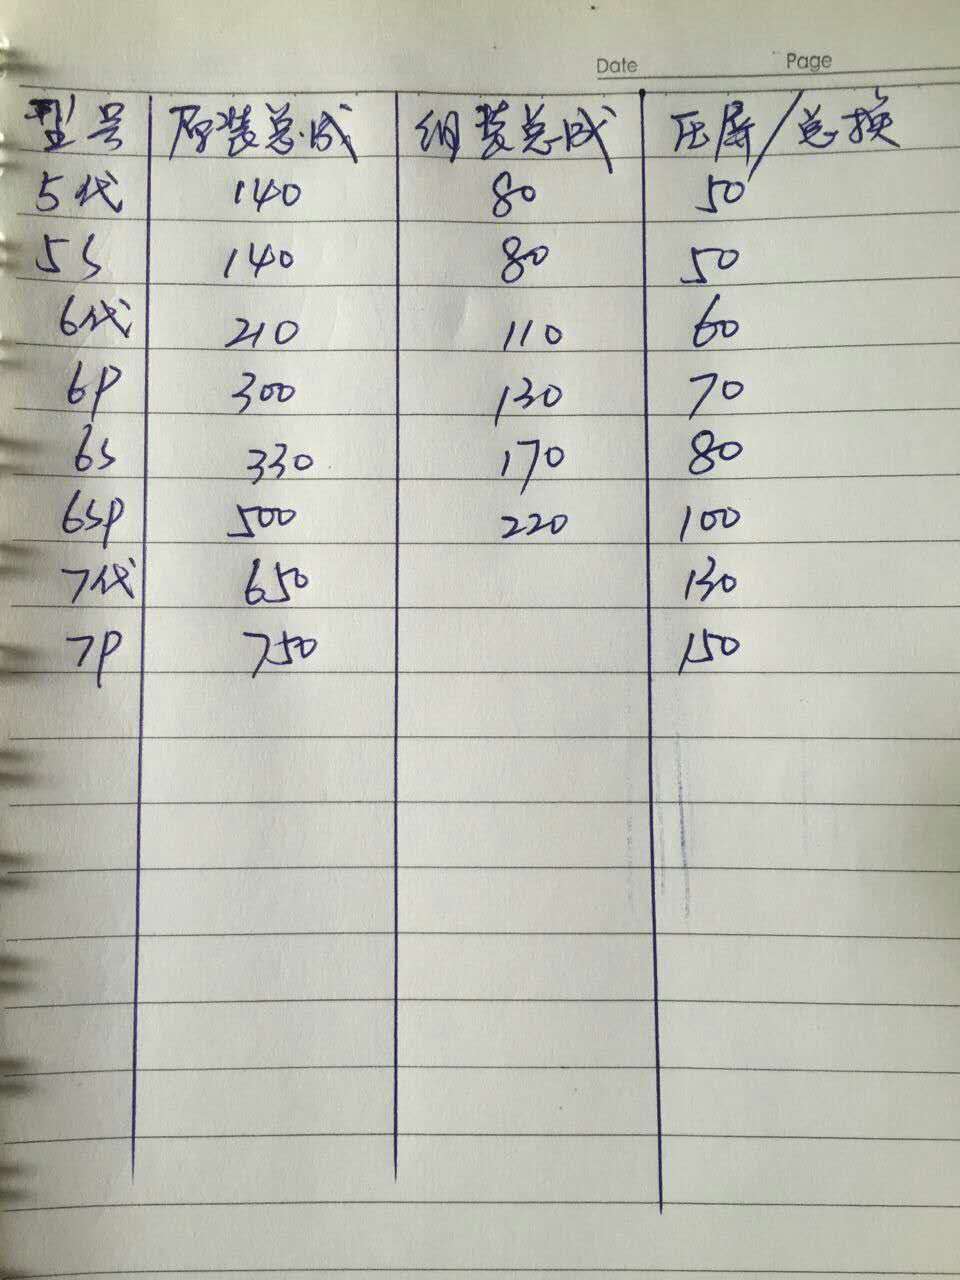 Date Page
型号 原装总成 组装总成 压屏/总换
5代 140 80 50
5S 140 80 50
6代 210 110 60
6P 300 130 70
6s 330 170 80
6sp 500 220 100
7代 650 130
7P 750 150